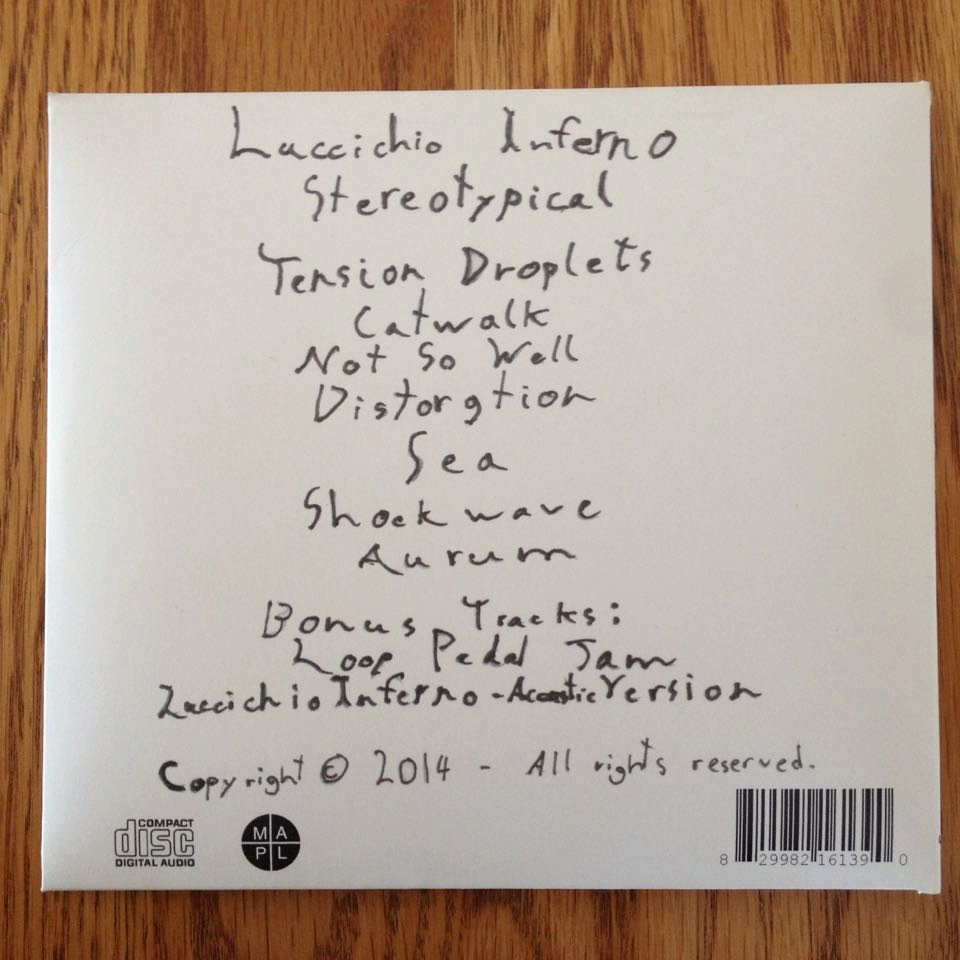 Luccichio Inferno
Stereotypical
Tension Droplets
Catwalk
Not So Well
Distorgtion
Sea
Shockwave
Aurum
Bonus Tracks:
Loop Pedal Jam
Luccichio Inferno - Acoustic Version
Copyright © 2014 - All rights reserved.
COMPACT
disc
DIGITAL AUDIO
MA
PL
8 29982 16139 0